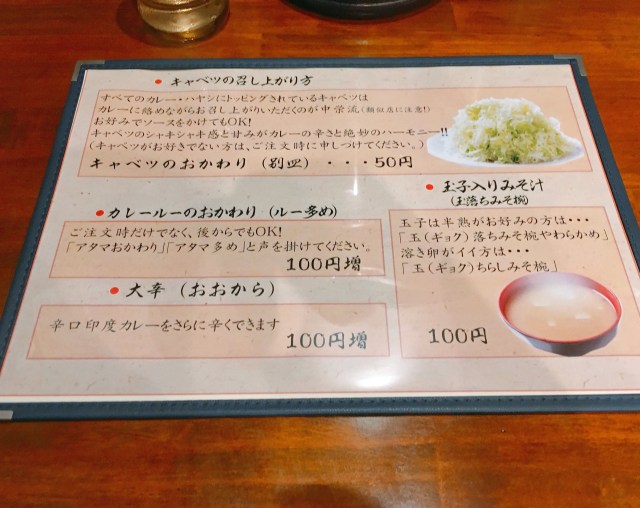 ● キャベツの召し上がり方
すべてのカレー・ハヤシにトッピングされているキャベツは
カレーに絡めながらお召し上がりいただくのが中栄流(類似店に注意!)
お好みでソースをかけてもOK!
キャベツのシャキシャキ感と甘みがカレーの辛さと絶妙のハーモニー!!
(キャベツがお好きでない方は、ご注文時に申しつけてください。)
キャベツのおかわり (別皿) ・・・50円
● カレールーのおかわり (ルー多め)
ご注文時だけでなく、後からでもOK!
「アタマおかわり」「アタマ多め」と声を掛けてください。
100円増
● 大辛 (おおから)
辛口印度カレーをさらに辛くできます
100円増
● 玉子入りみそ汁
(玉落ちみそ椀)
玉子は半熟がお好みの方は・・・
「玉(ギョク)落ちみそ椀やわらかめ」
溶き卵がイイ方は・・・
「玉(ギョク)ちらしみそ椀」
100円